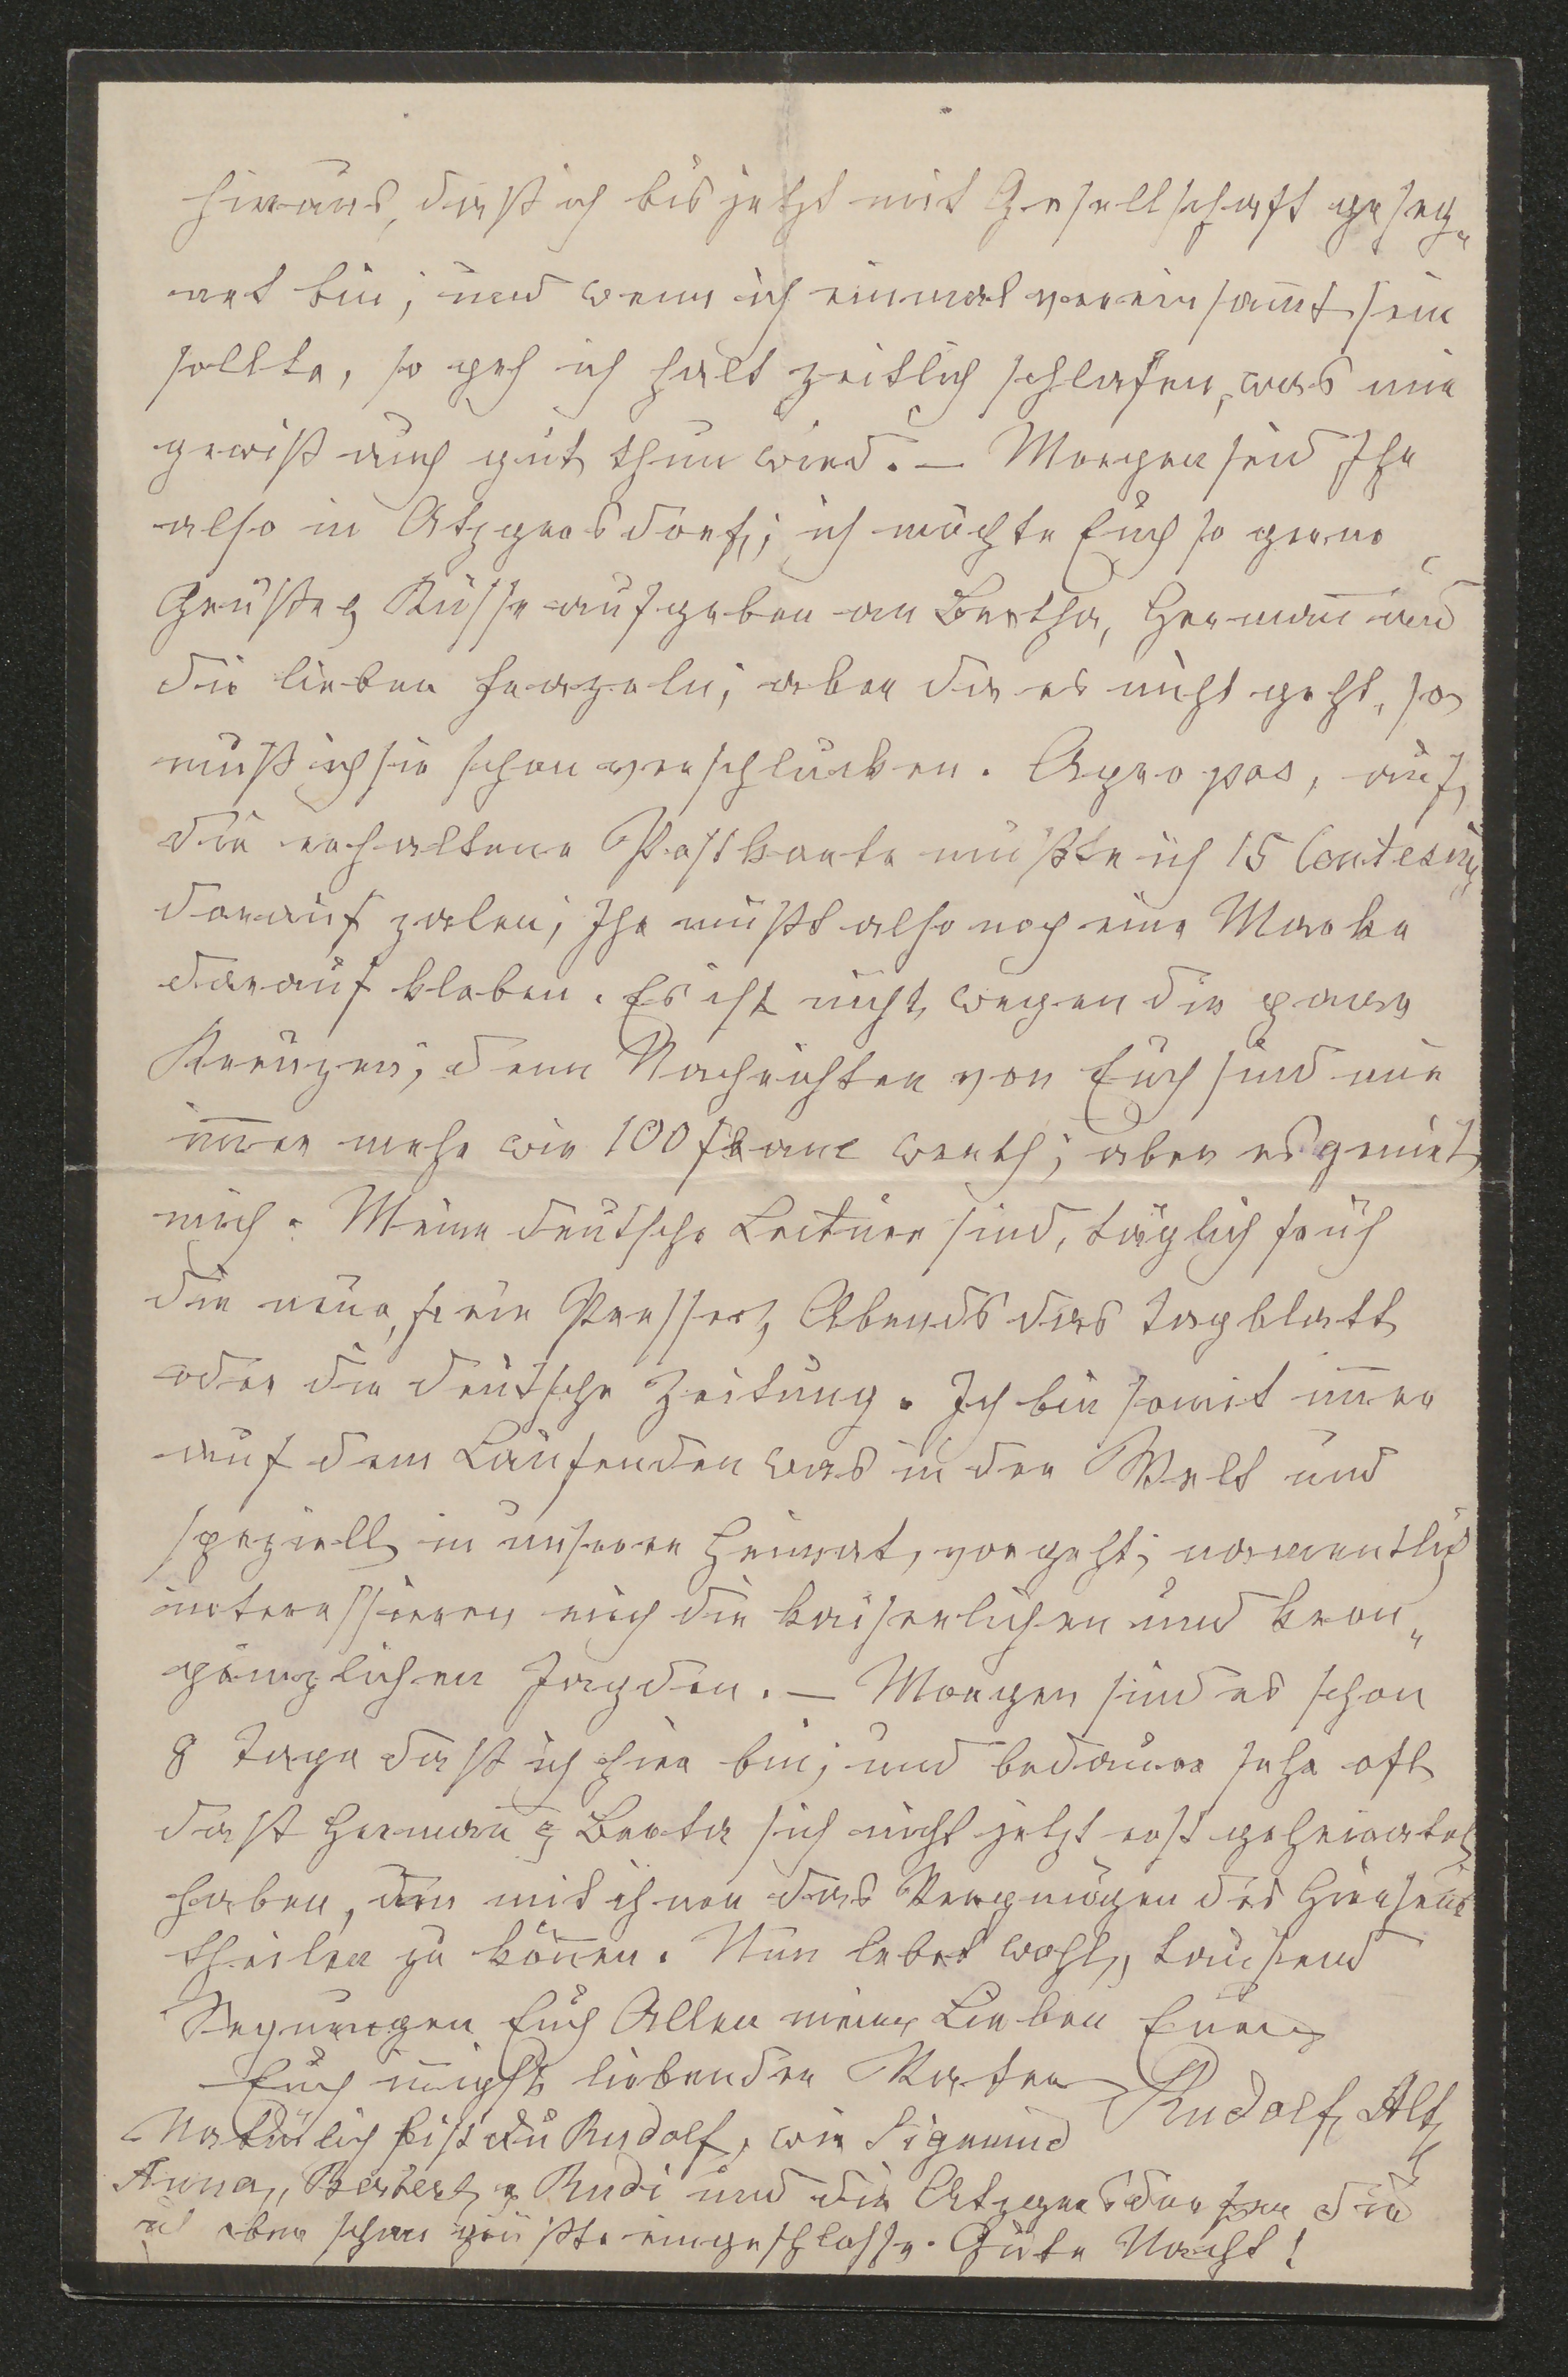 hieraus, daß ich bis jetzt mit Gesellschaft geseg„
net bin; und wenn ich einmal vereinsam̅t sein
sollte, so geh ich halt zeitlich schlafen, was mir
gewiß auch gut thun wird. — Morgen seid Ihr
also in Atzgersdorf; ich möchte Euch so gerne
Grüße & Küsse aufgeben an Bertha, Herman̅ und
die lieben Frazeln; aber da es nicht geht, so
muß ich sie schon verschlucken. Apropos, auf
die erhaltene Postkarte mußte ich 15 Contesim
darauf zalen; Ihr müßt also noch eine Marke
darauf kleben. Es ist nicht wegen die paar
Kreuzer, denn Nachrichten von Euch sind mir
im̅er mehr wie 100 franc werth; aber es geniert
mich. Meine deutsche Lectüre sind, täglich früh
die neue, freie Presse & Abends das Tagblatt
oder die deutsche Zeitung. Ich bin somit im̅er
auf dem Laufenden was in der Welt und
speziell in unserer Heimat, vorgeht; namentlich
interessieren mich die kaiserlichen und kron„
prinzlichen Jagden. — Morgen sind es schon
8 Tage daß ich hier bin; und bedaure sehr oft
daß Herman̅ & Berta sich nicht jetzt erst geheiratet
haben, um mit ihnen das Vergnügen des Hierseins
theilen zu kön̅en. Nun lebet wohl, tausend
Segnungen Euch Allen meine Lieben Euer
Euch in̅igst liebender Vater
Rudolf Alt
Natürlich bist du Rudolf, wie Sigmund
Anna, & Rudi und die Atzgersdorfer die
aber schon grüßte eingeschlosse. Gute Nacht!